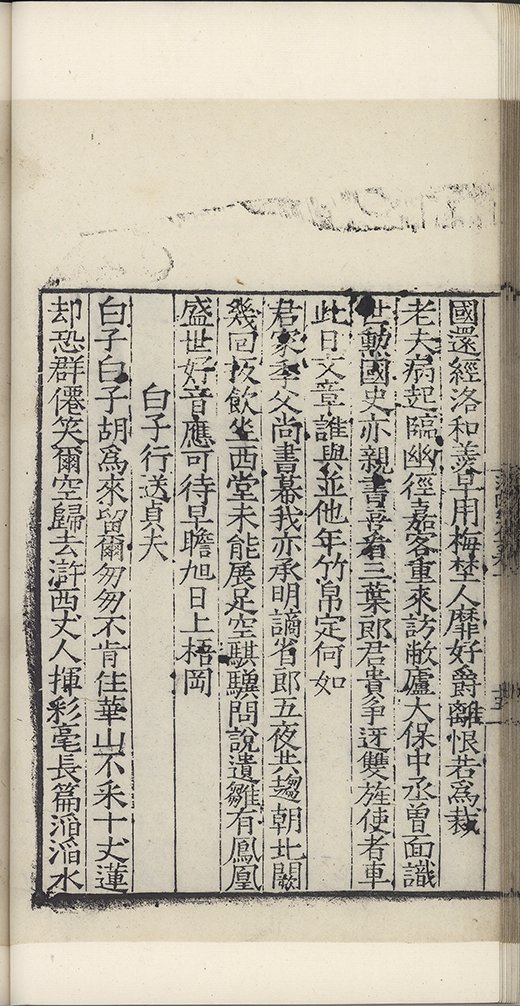 國還經洛和羹早用梅埜人靡好爵離恨若爲裁
老夫病起臨幽徑嘉客重來訪敝廬大保中丞曾面識
世勳國史亦親書喜看三葉郎君貴爭迓雙旌使者車
此日文章誰與並他年竹帛定何如
君家季父尚書幕我亦承明謫省郎五夜共趨朝北闕
幾回扳飲坐西堂未能展足空騏驥問說遺雛有鳳凰
盛世好音應可待早瞻旭日上梧岡
白子行送貞夫
白子白子胡爲來留爾匆匆不肯住華山不采十丈蓮
却恐群僊笑爾空歸去滸西丈人揮彩毫長篇滔滔水